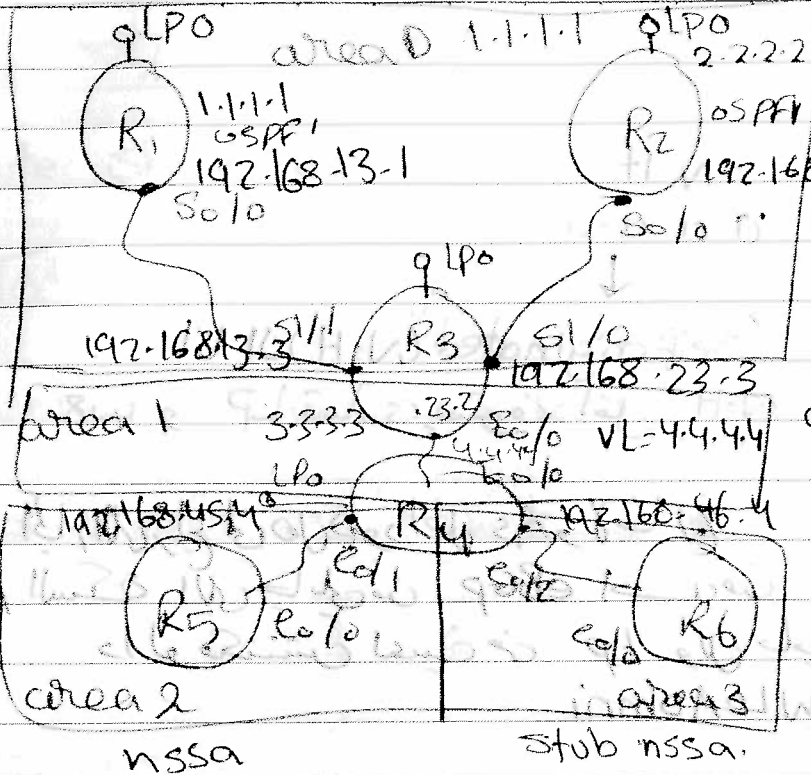 LP0 area 0 1.1.1.1 LP0
2.2.2.2
R1 1.1.1.1 R2 OSPF1
OSPF1
192.168.13.1 192.16
S0/0 S0/0
LP0
192.168.13.3 S1/1 R3 S1/0
192.168.23.3
area 1 3.3.3.3 .23.2 E0/0 VL=4.4.4.4
LP0 E0/0
192.168.45.4 R4 192.168.46.4
e0/1 e0/2
R5 e0/0 e0/0 R6
area 2 area 3
nssa stub nssa.